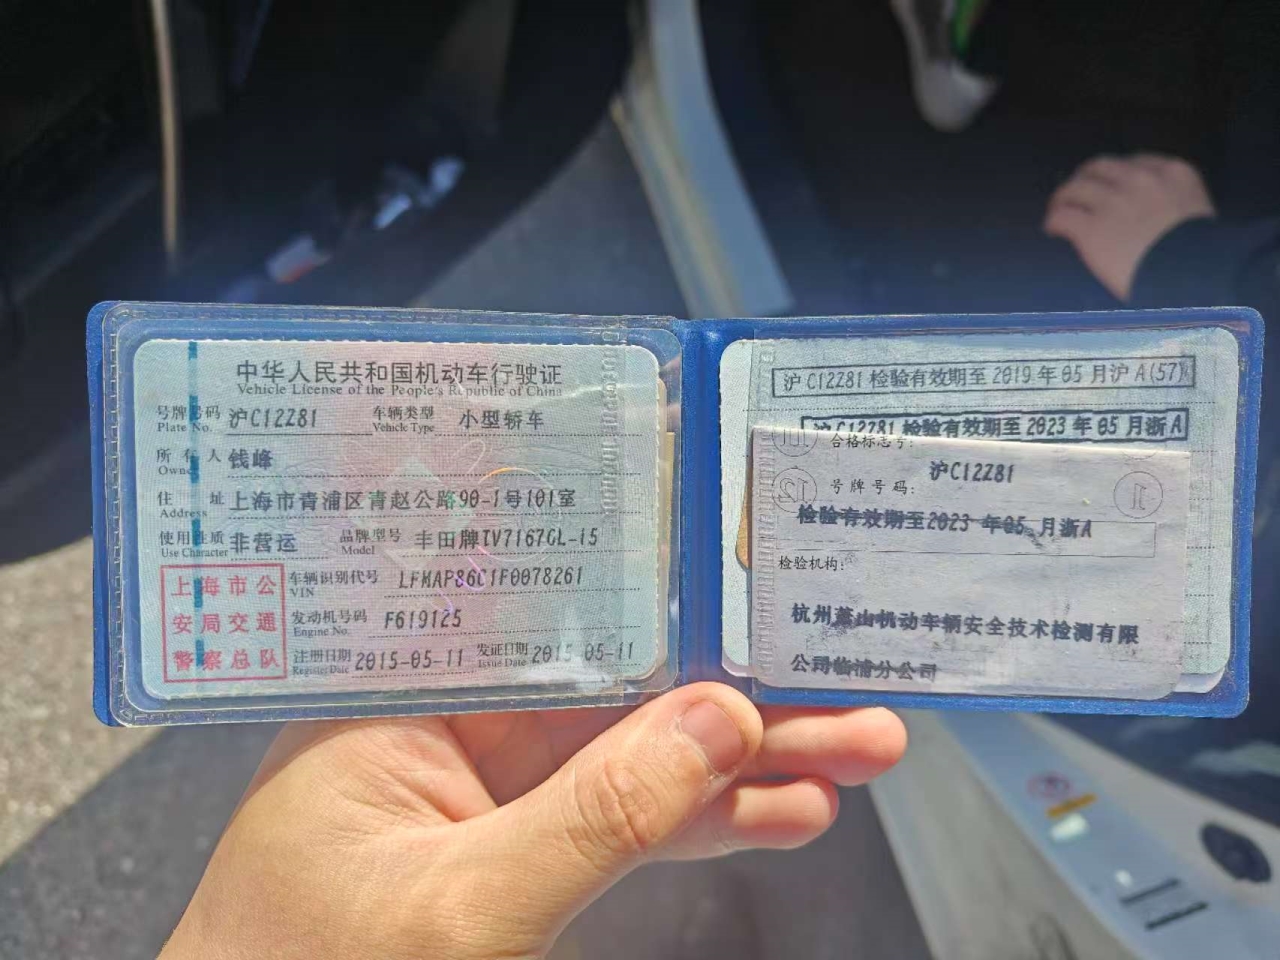 中华人民共和国机动车行驶证
Vehicle License of the People's Republic of China
号牌号码 沪C12Z81 车辆类型 小型轿车
Plate No. Vehicle Type
所有人 钱峰
Owner
住址 上海市青浦区青赵公路90-1号101室
Address
使用性质 非营运 品牌型号 丰田牌TV7167GL-i5
Use Character Model
上海市公安局交通警察总队
车辆识别代号 LFMAP86C1F0078261
VIN
发动机号码 F619125
Engine No.
注册日期 2015-05-11 发证日期 2015-05-11
Register Date Issue Date
沪C12Z81检验有效期至2019年05月沪A(57)
沪C12Z81检验有效期至2023年05月浙A
合格标志号:
号牌号码: 沪C12Z81
检验有效期至2023年05月浙A
检验机构:
杭州萧山机动车辆安全技术检测有限
公司临浦分公司